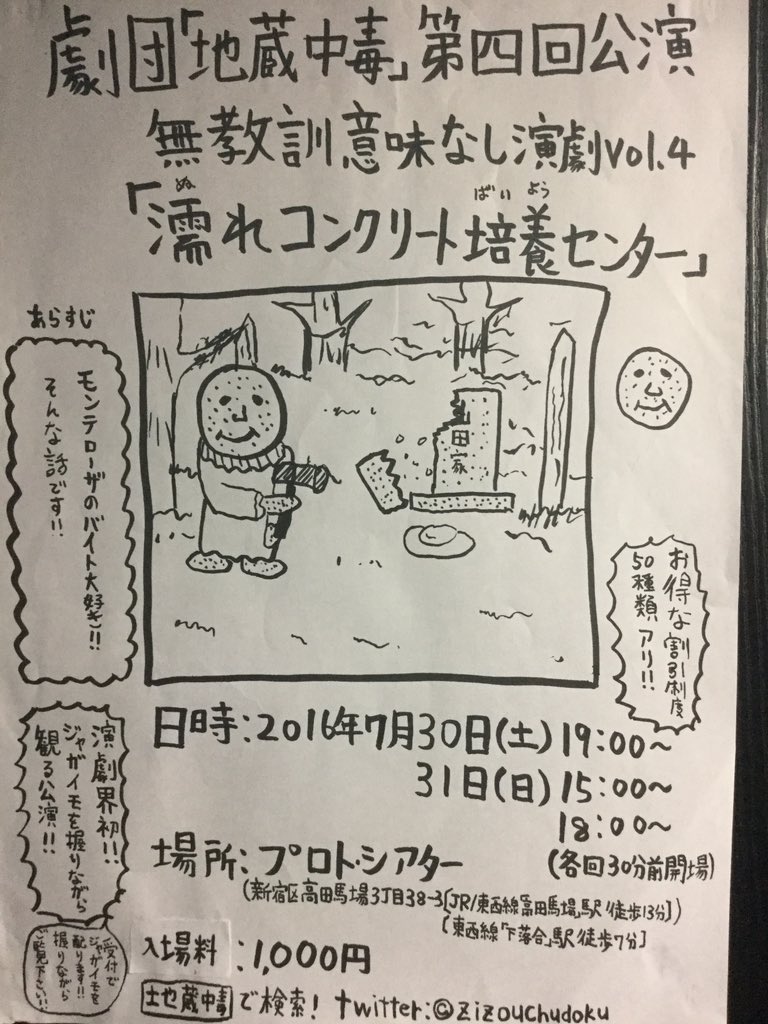 劇団「地蔵中毒」第四回公演
無教訓意味なし演劇vol.4
ぬ ばい よう
「濡れコンクリート培養センター」
あらすじ
モンテローザのバイト大好き!!
そんな話です!!
田家
お得な割引制度
50種類アリ!!
演劇界初!!
ジャガイモを握りながら
観る公演!!
日時:2016年7月30日(土)19:00~
31日(日)15:00~
18:00~
(各回30分前開場)
場所:プロト・シアター
(新宿区高田馬場3丁目38-3[JR/東西線「高田馬場」駅/徒歩13分])
[東西線「下落合」駅/徒歩7分]
受付で
ジャガイモを
配ります!!
握りながら
ご覧下さい!!
入場料:1,000円
地蔵中毒で検索! twitter:@zizouchudoku